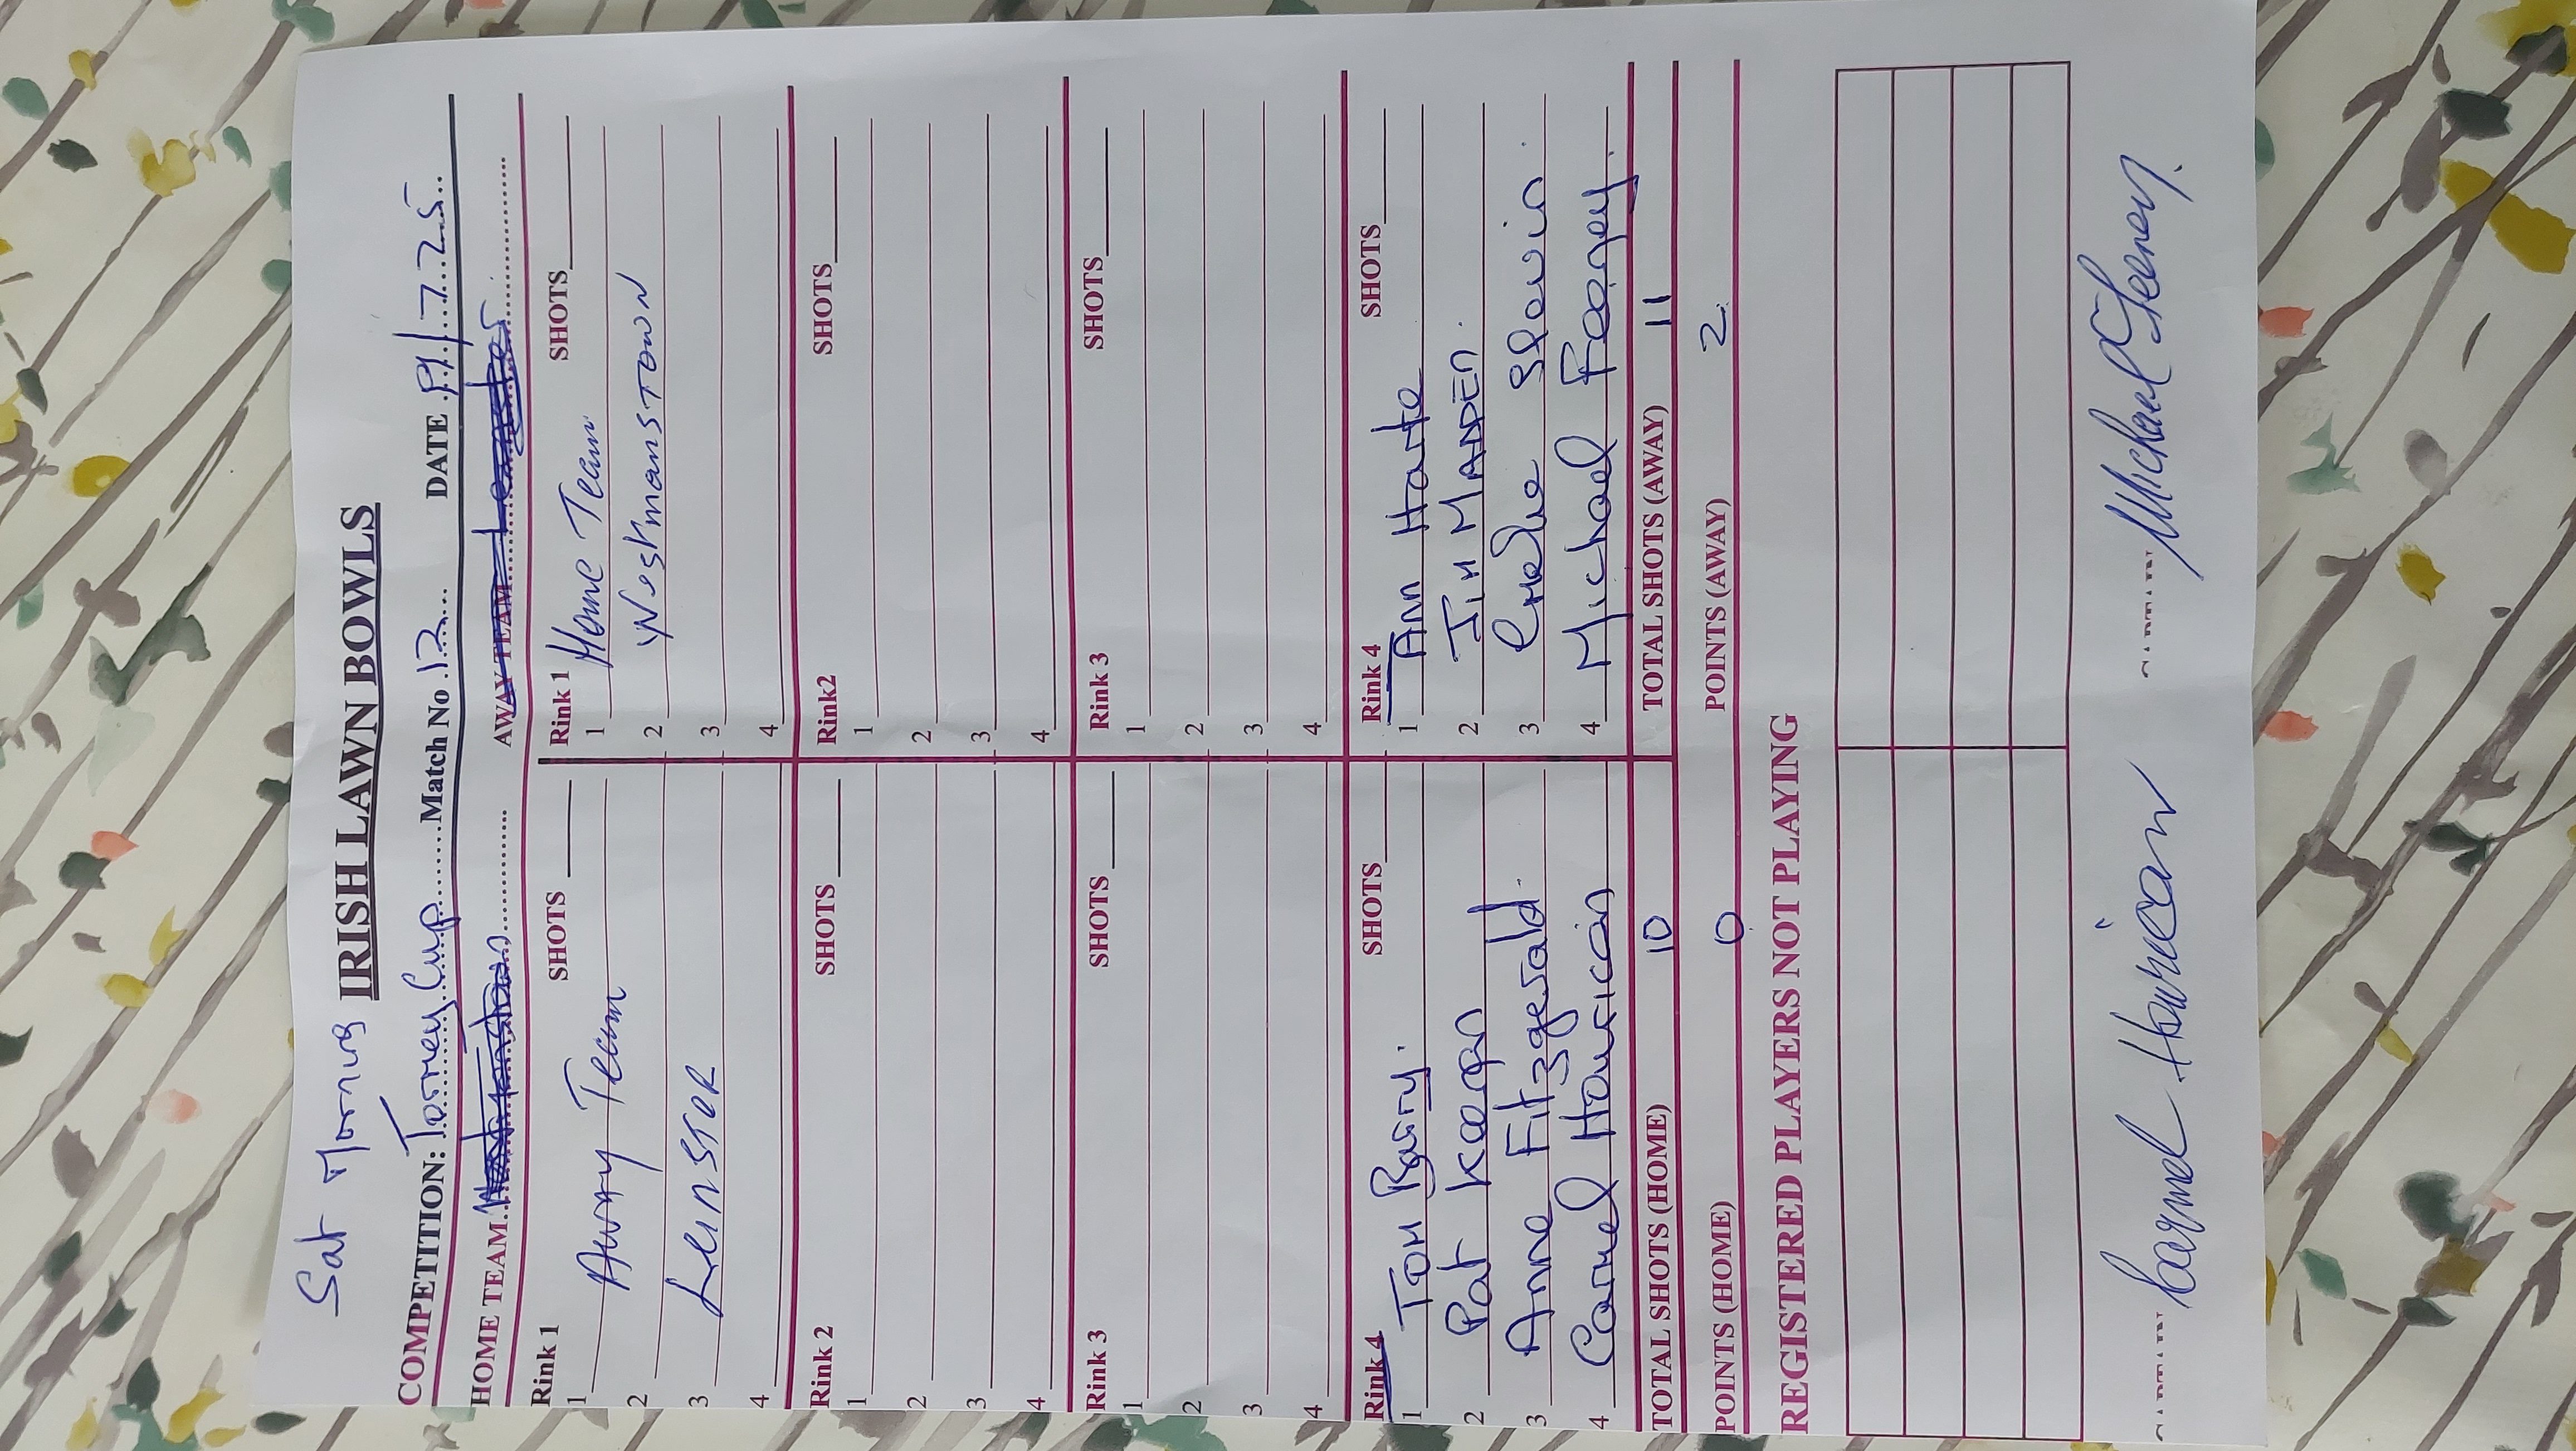 Sat Morning IRISH LAWN BOWLS
COMPETITION: Tormey Cup Match No 12 DATE 7.25
HOME TEAM AWAY TEAM Leinster
Rink 1 SHOTS Rink 1 SHOTS
1 Away Team 1 Home Team
2 2 Weshmanstown
3 Leinster 3
4 4
Rink 2 SHOTS Rink2 SHOTS
1 1
2 2
3 3
4 4
Rink 3 SHOTS Rink 3 SHOTS
1 1
2 2
3 3
4 4
Rink 4 SHOTS Rink 4 SHOTS
1 Tom Barry. 1 Ann Harte
2 Pat Keegan 2 Jim MADDEN.
3 Anne Fitzgerald. 3 Slevin.
4 Carmel Hourican 4 Michael Feeney.
TOTAL SHOTS (HOME) 10 TOTAL SHOTS (AWAY) 11
POINTS (HOME) 0 POINTS (AWAY) 2
REGISTERED PLAYERS NOT PLAYING
Carmel Hourican Michael Feeney.